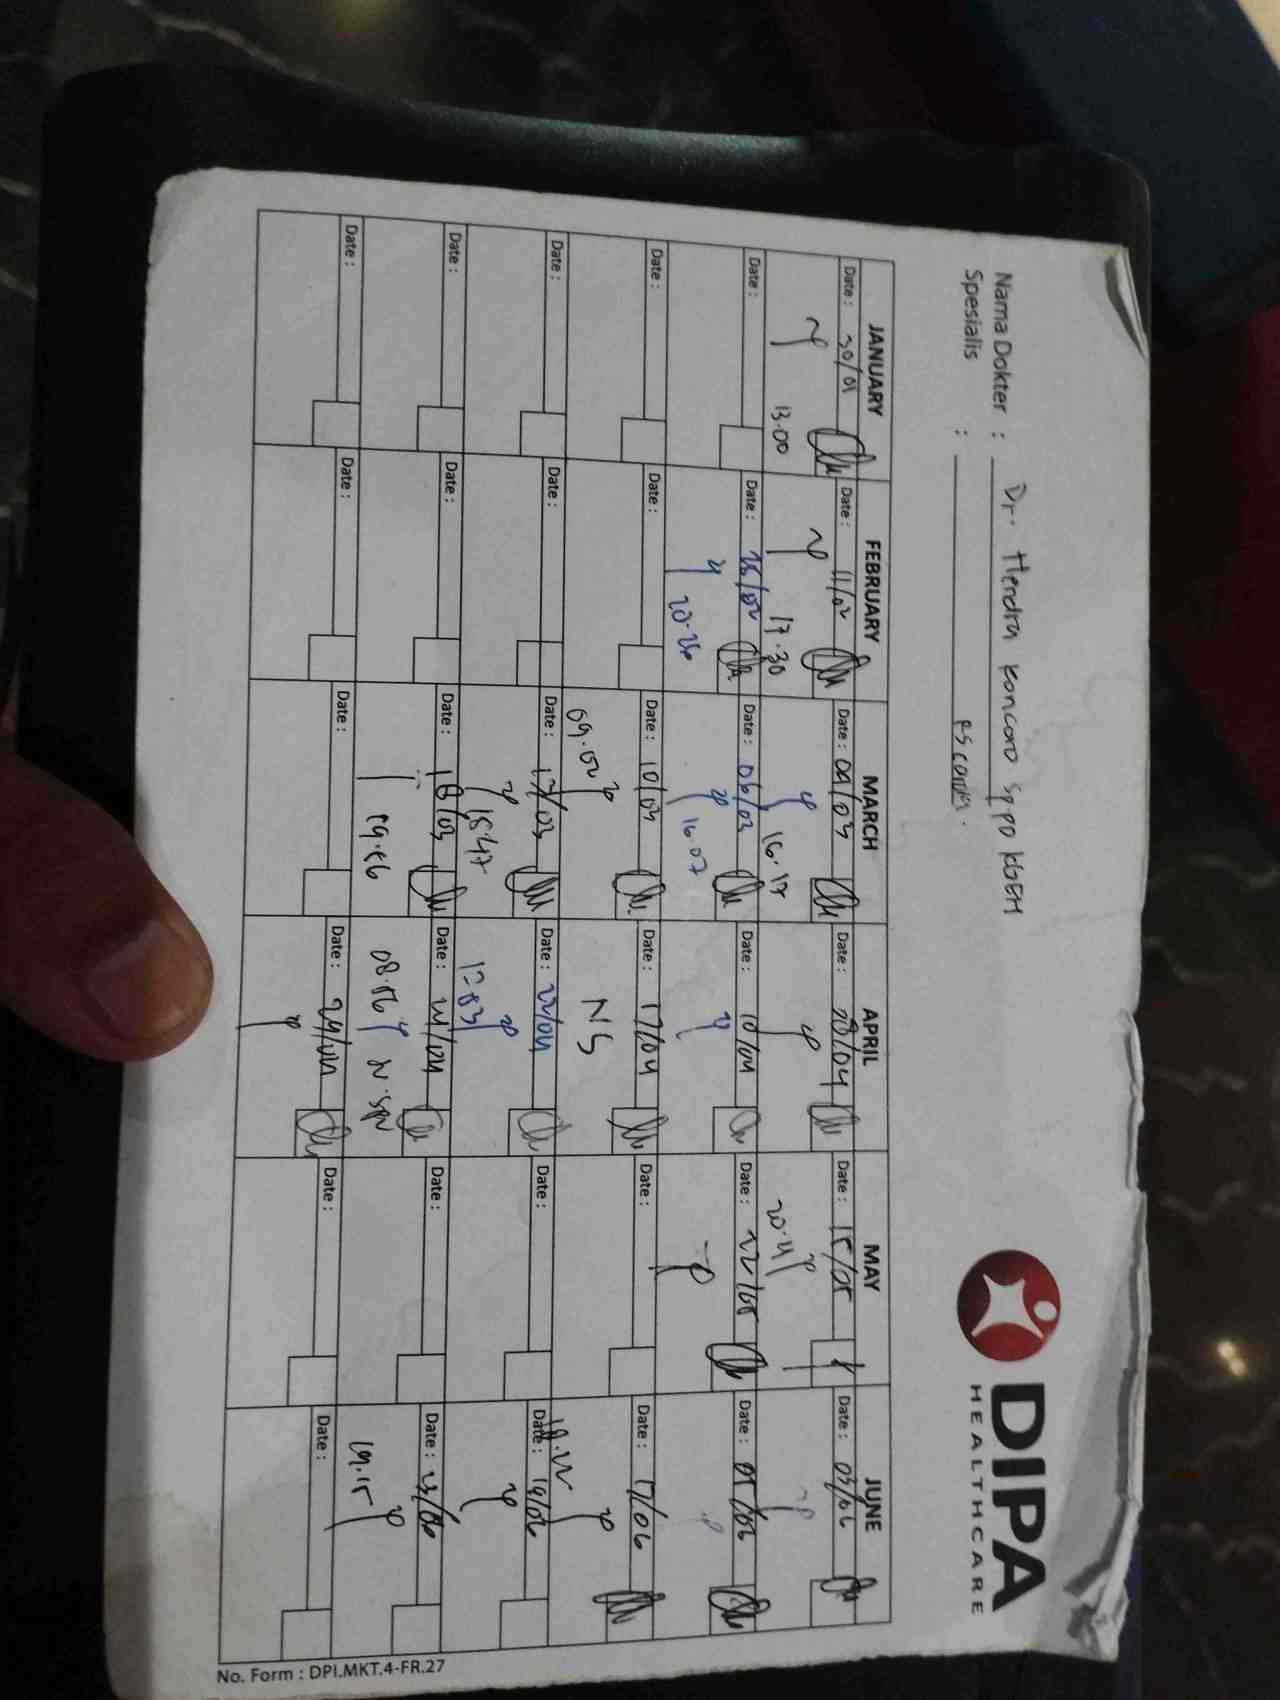 DIPA
HEALTHCARE
Nama Dokter : Dr. Hendra Koncoro SpPD KGEH
Spesialis :
JANUARY FEBRUARY MARCH APRIL MAY JUNE
Date : 30/01 Date : 11/02 Date : 04/03 Date : 08/04 Date : 15/05 Date : 03/06
13.00 17.30 16.17 20.41
Date : Date : 25/02 Date : 06/03 Date : 10/04 Date : 22/05 Date : 05/06
20.26 16.07
Date : Date : Date : 10/03 Date : 17/04 Date : Date : 17/06
09.02 NS 18.22
Date : Date : Date : 13/03 Date : 22/04 Date : Date : 19/06
15.47 12.03
Date : Date : Date : 18/03 Date : Date : Date : 23/06
19.06 08.56 19.15
Date : Date : Date : Date : 29/04 Date : Date :
No. Form : DPI.MKT.4-FR.27